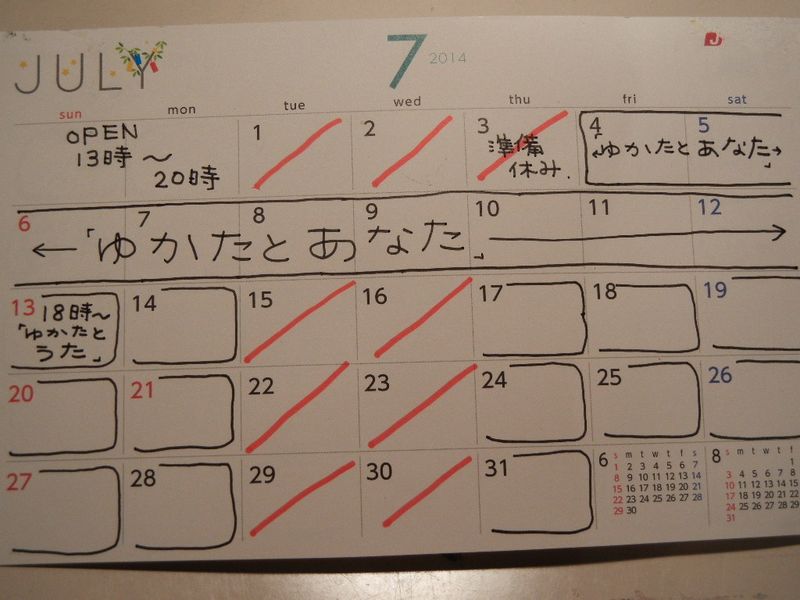 JULY 7 2014
sun mon tue wed thu fri sat
OPEN
13時〜
20時
1 2 3 4 5
準備
休み.
「ゆかたと あなた」
6 7 8 9 10 11 12
←「ゆかたとあなた」→
13 14 15 16 17 18 19
18時〜
「ゆかたと
うた」
20 21 22 23 24 25 26
27 28 29 30 31
6
s m t w t f s
1 2 3 4 5 6 7
8 9 10 11 12 13 14
15 16 17 18 19 20 21
22 23 24 25 26 27 28
29 30
8
s m t w t f
1
3 4 5 6 7 8
10 11 12 13 14 15
17 18 19 20 21 22
24 25 26 27 28 29
31